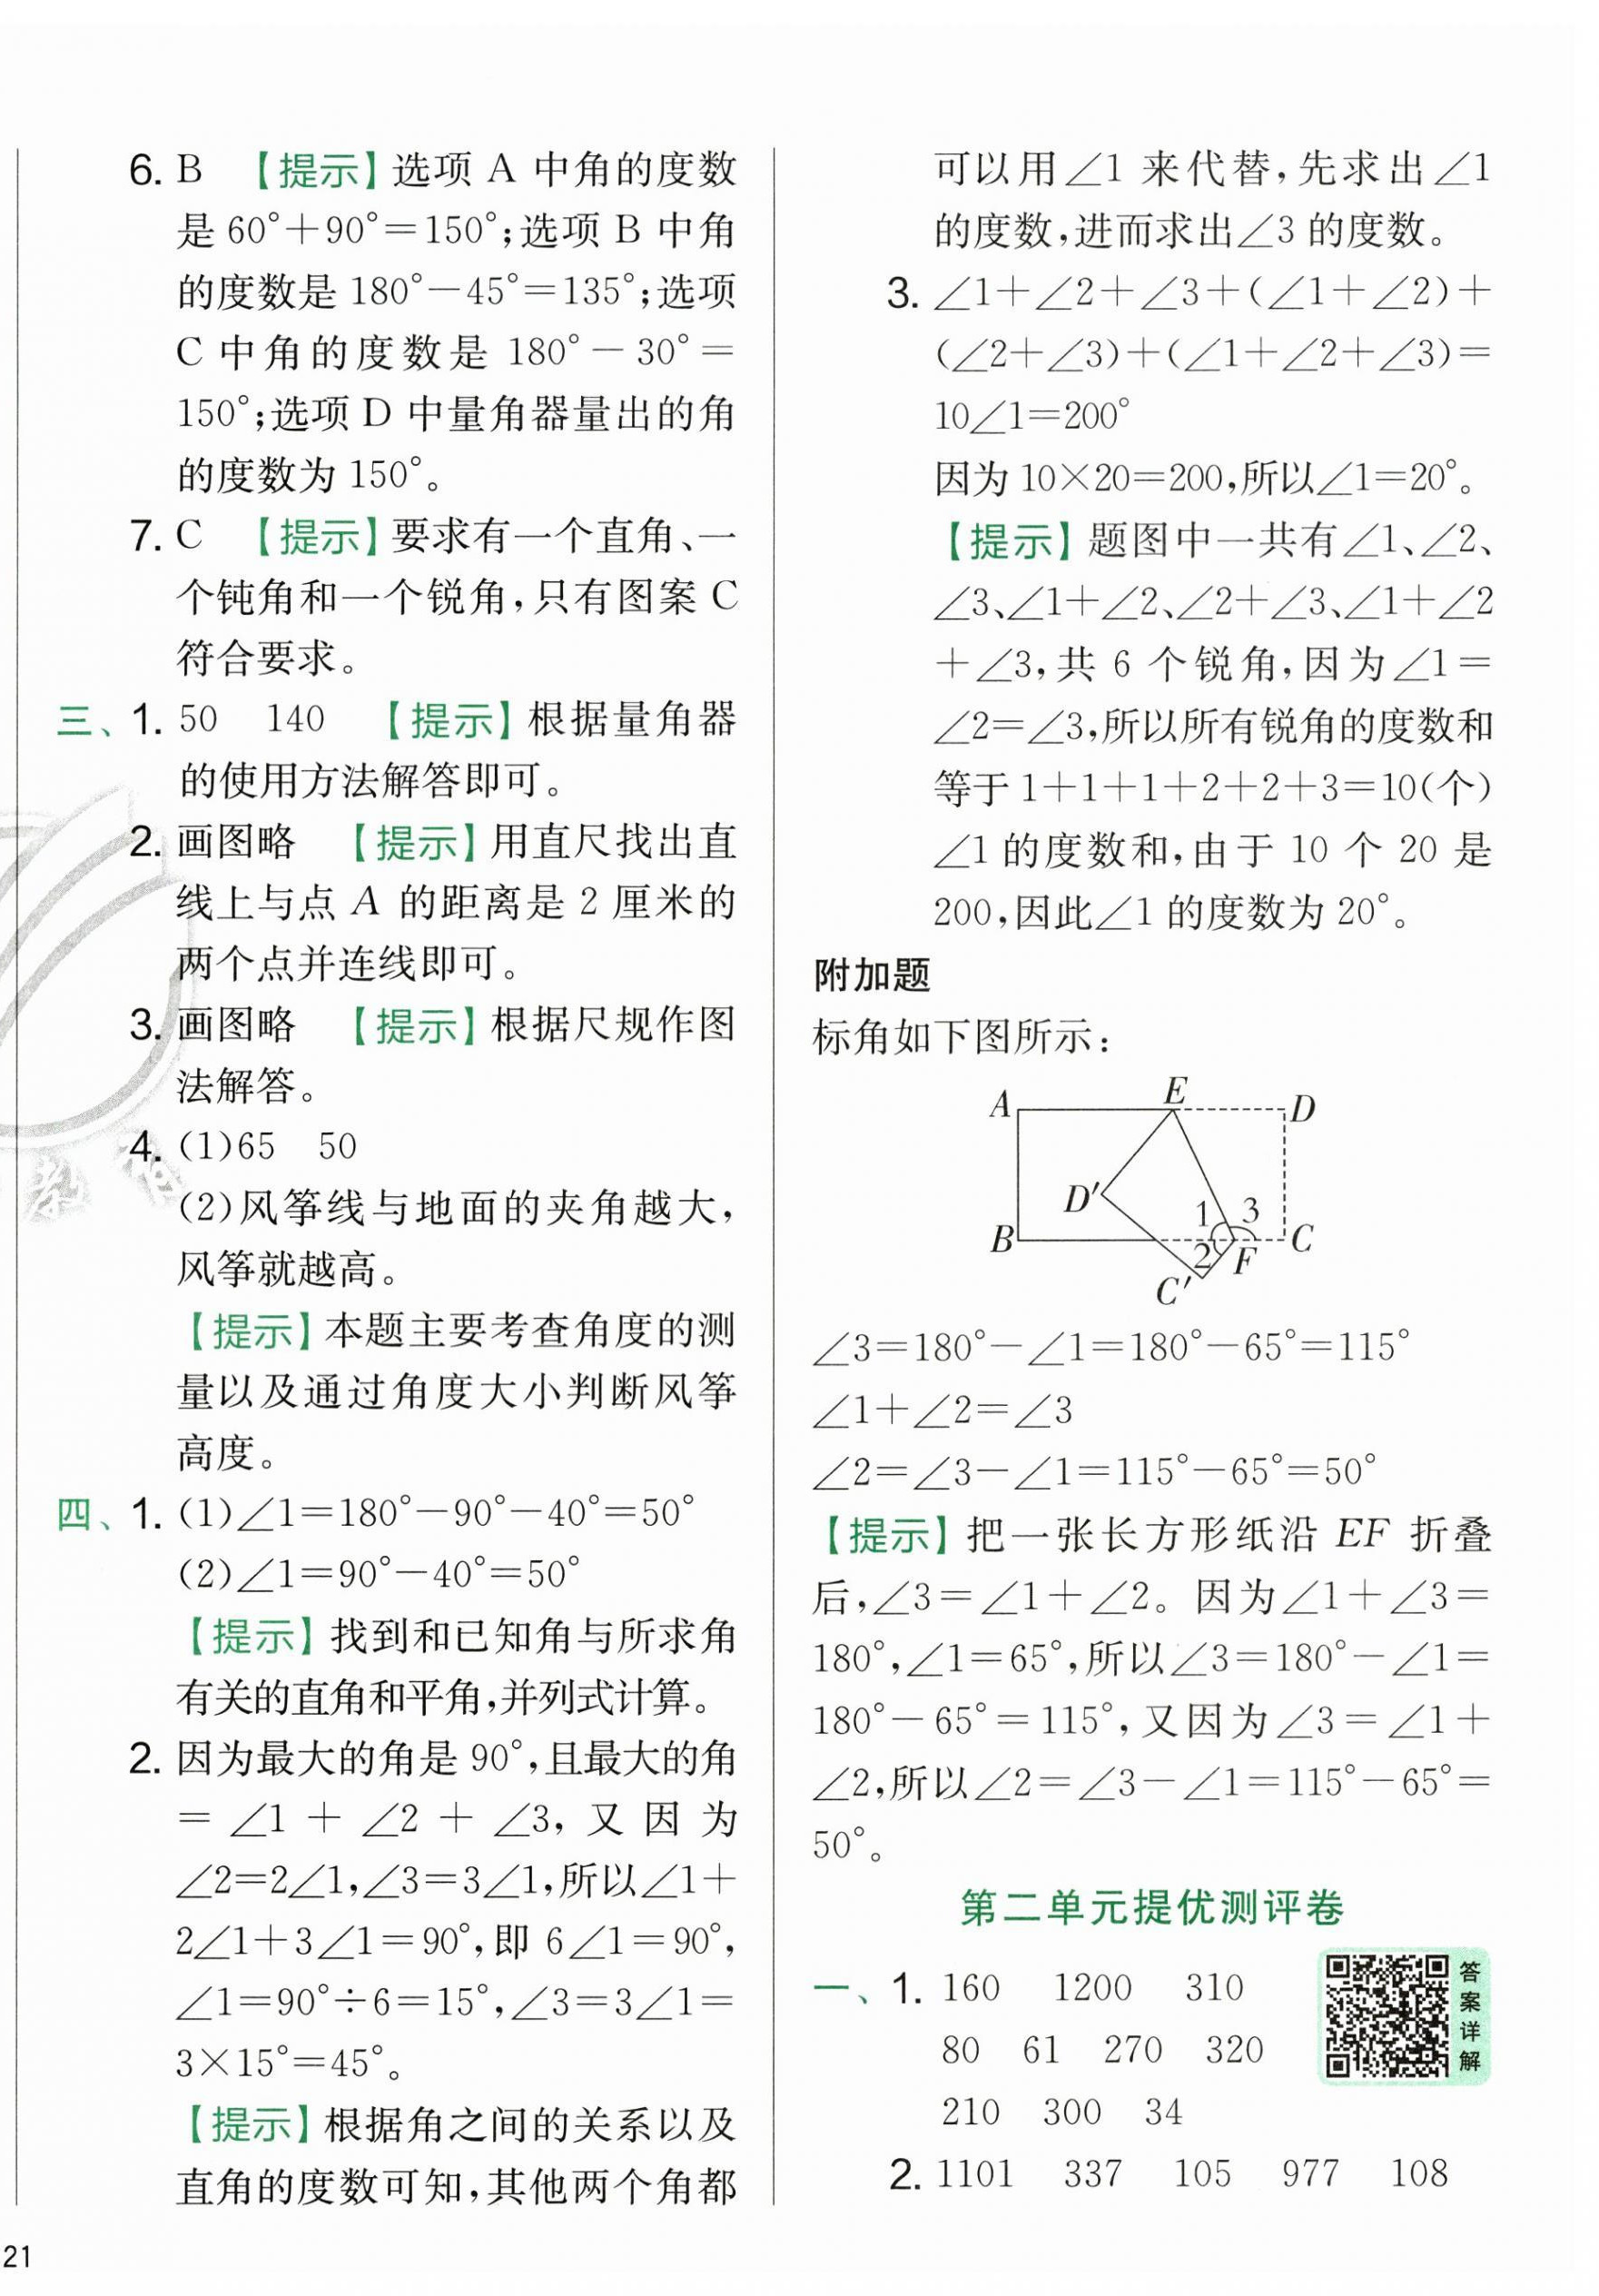 6. B 【提示】选项 A 中角的度数
是 60°+90°=150°;选项 B 中角
的度数是 180°-45°=135°;选项
C 中角的度数是 180°-30°=
150°;选项 D 中量角器量出的角
的度数为 150°。
7. C 【提示】要求有一个直角、一
个钝角和一个锐角,只有图案 C
符合要求。
三、1. 50 140 【提示】根据量角器
的使用方法解答即可。
2. 画图略 【提示】用直尺找出直
线上与点 A 的距离是 2 厘米的
两个点并连线即可。
3. 画图略 【提示】根据尺规作图
法解答。
4. (1)65 50
(2)风筝线与地面的夹角越大,
风筝就越高。
【提示】本题主要考查角度的测
量以及通过角度大小判断风筝
高度。
四、1. (1)∠1=180°-90°-40°=50°
(2)∠1=90°-40°=50°
【提示】找到和已知角与所求角
有关的直角和平角,并列式计算。
2. 因为最大的角是 90°,且最大的角
=∠1+∠2+∠3,又因为
∠2=2∠1,∠3=3∠1,所以∠1+
2∠1+3∠1=90°,即 6∠1=90°,
∠1=90°÷6=15°,∠3=3∠1=
3×15°=45°。
【提示】根据角之间的关系以及
直角的度数可知,其他两个角都
教育
21
可以用∠1 来代替,先求出∠1
的度数,进而求出∠3 的度数。
3. ∠1+∠2+∠3+(∠1+∠2)+
(∠2+∠3)+(∠1+∠2+∠3)=
10∠1=200°
因为 10×20=200,所以∠1=20°。
【提示】题图中一共有∠1、∠2、
∠3、∠1+∠2、∠2+∠3、∠1+∠2
+∠3,共 6 个锐角,因为∠1=
∠2=∠3,所以所有锐角的度数和
等于 1+1+1+2+2+3=10(个)
∠1 的度数和,由于 10 个 20 是
200,因此∠1 的度数为 20°。
附加题
标角如下图所示:
A E D
D′ 1 3
B 2 F C
C′
∠3=180°-∠1=180°-65°=115°
∠1+∠2=∠3
∠2=∠3-∠1=115°-65°=50°
【提示】把一张长方形纸沿 EF 折叠
后,∠3=∠1+∠2。因为∠1+∠3=
180°,∠1=65°,所以∠3=180°-∠1=
180°-65°=115°,又因为∠3=∠1+
∠2,所以∠2=∠3-∠1=115°-65°=
50°。
第二单元提优测评卷
一、1. 160 1200 310
80 61 270 320
210 300 34
答案详解
2. 1101 337 105 977 108